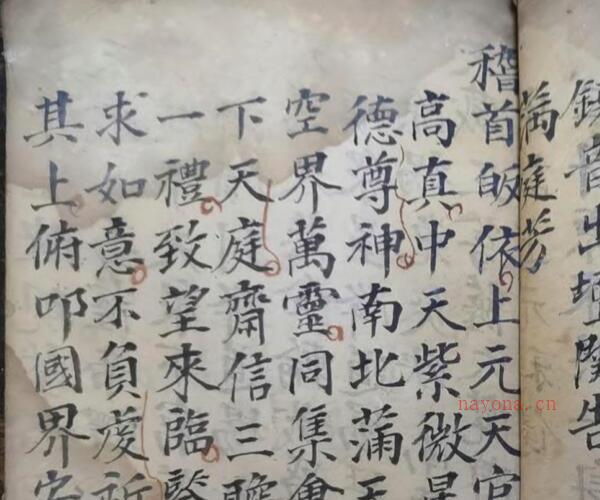 鎮音出壇関告
庭芳
稽首皈依上元天官
高真中天紫微星
德尊神南北蒲天
空界萬靈同集會
下天庭齋信三瞻
一禮致望來臨
求如意不負虔祈
其上俯叩國界安
nayona.cn